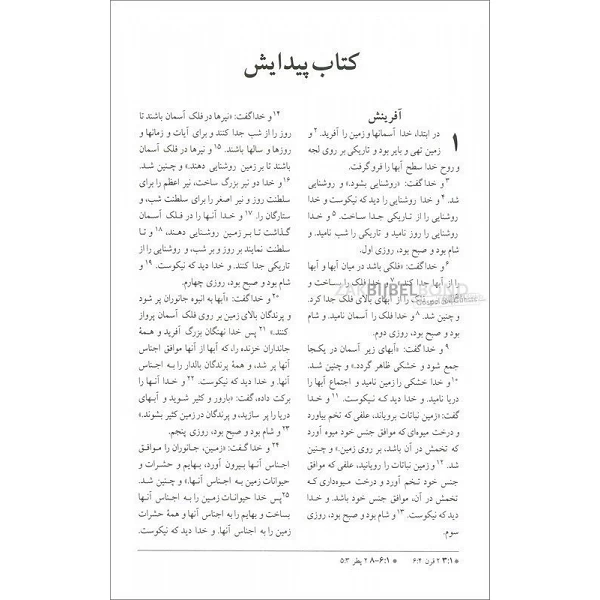 کتاب پیدایش
آفرینش
۱ در ابتدا، خدا آسمانها و زمین را آفرید. ۲ و
زمین تهی و بایر بود و تاریکی بر روی لجه
و روح خدا سطح آبها را فروگرفت.
۳ و خدا گفت: «روشنایی بشود.» و روشنایی
شد. ۴ و خدا روشنایی را دید که نیکوست و خدا
روشنایی را از تاریکی جدا ساخت. ۵ و خدا
روشنایی را روز نامید و تاریکی را شب نامید. و
شام بود و صبح بود، روزی اول.
۶ و خدا گفت: «فلکی باشد در میان آبها و آبها
را از آبها جدا کند.» ۷ و خدا فلک را بساخت و
را از آبهای بالای فلک جدا کرد.
و چنین شد. ۸ و خدا فلک را آسمان نامید. و شام
بود و صبح بود، روزی دوم.
۹ و خدا گفت: «آبهای زیر آسمان در یکجا
جمع شود و خشکی ظاهر گردد.» و چنین شد.
۱۰ و خدا خشکی را زمین نامید و اجتماع آبها را
دریا نامید. و خدا دید که نیکوست. ۱۱ و خدا
گفت: «زمین نباتات برویاند، علفی که تخم بیاورد
و درخت میوه‌ای که موافق جنس خود میوه آورد
که تخمش در آن باشد، بر روی زمین.» و چنین
شد. ۱۲ و زمین نباتات را رویانید، علفی که موافق
جنس خود تخم آورد و درخت میوه‌داری که
تخمش در آن، موافق جنس خود باشد. و خدا
دید که نیکوست. ۱۳ و شام بود و صبح بود، روزی
سوم.
۱۴ و خدا گفت: «نیرها در فلک آسمان باشند تا
روز را از شب جدا کنند و برای آیات و زمانها و
روزها و سالها باشند. ۱۵ و نیرها در فلک آسمان
باشند تا بر زمین روشنایی دهند.» و چنین شد.
۱۶ و خدا دو نیر بزرگ ساخت، نیر اعظم را برای
سلطنت روز و نیر اصغر را برای سلطنت شب، و
ستارگان را. ۱۷ و خدا آنها را در فلک آسمان
گذاشت تا بر زمین روشنایی دهند، ۱۸ و تا
سلطنت نمایند بر روز و بر شب، و روشنایی را از
تاریکی جدا کنند. و خدا دید که نیکوست. ۱۹ و
شام بود و صبح بود، روزی چهارم.
۲۰ و خدا گفت: «آبها به انبوه جانوران پر شود
و پرندگان بالای زمین بر روی فلک آسمان پرواز
کنند.» ۲۱ پس خدا نهنگان بزرگ آفرید و همهٔ
جانداران خزنده را، که آبها از آنها موافق اجناس
آنها پر شد، و همهٔ پرندگان بالدار را به اجناس
آنها. و خدا دید که نیکوست. ۲۲ و خدا آنها را
برکت داده، گفت: «بارور و کثیر شوید و آبهای
دریا را پر سازید، و پرندگان در زمین کثیر بشوند.»
۲۳ و شام بود و صبح بود، روزی پنجم.
۲۴ و خدا گفت: «زمین، جانوران را موافق
اجناس آنها بیرون آورد، بهایم و حشرات و
حیوانات زمین به اجناس آنها.» و چنین شد.
۲۵ پس خدا حیوانات زمین را به اجناس آنها
بساخت و بهایم را به اجناس آنها و همهٔ حشرات
زمین را به اجناس آنها. و خدا دید که نیکوست.
* ۳:۱ ۲ قرن ۶:۴ * ۶:۱-۸ ۲ پطر ۵:۳
ZAKBIJBELBOND